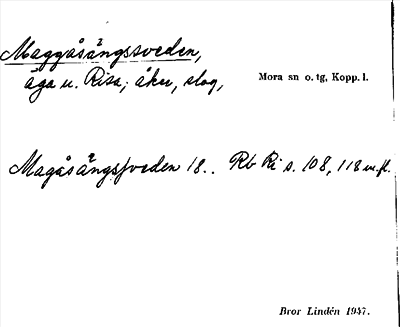 Maggåsängssveden,
äga u. Risa; åker, slog,
Mora sn o. tg, Kopp. l.
Magåsängsfveden 18.. Rb Ri s. 108, 118 m.fl.
Bror Lindén 1947.